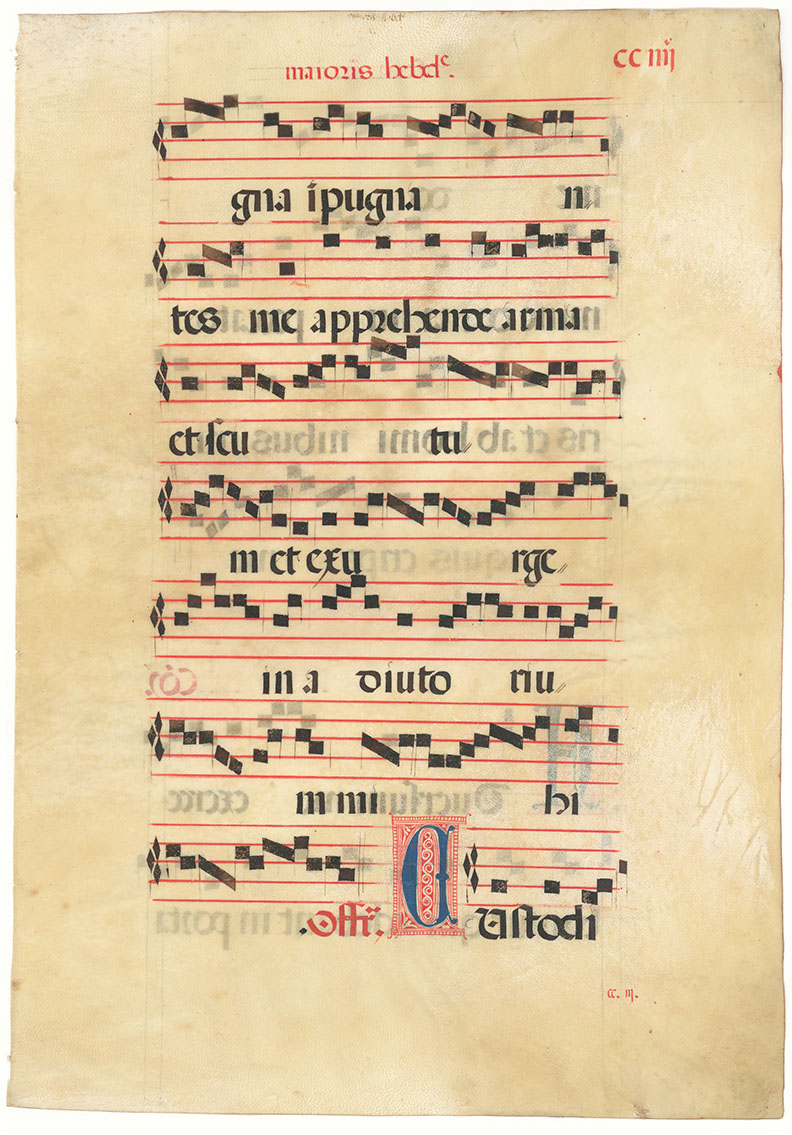 maioris hebde.
cc iiij
gna ipugna n
tes me apprehende arma
et scu tu
m et exu rge
in a diuto riu
m mi hi
.Offr. C Ustodi
cc. iij.